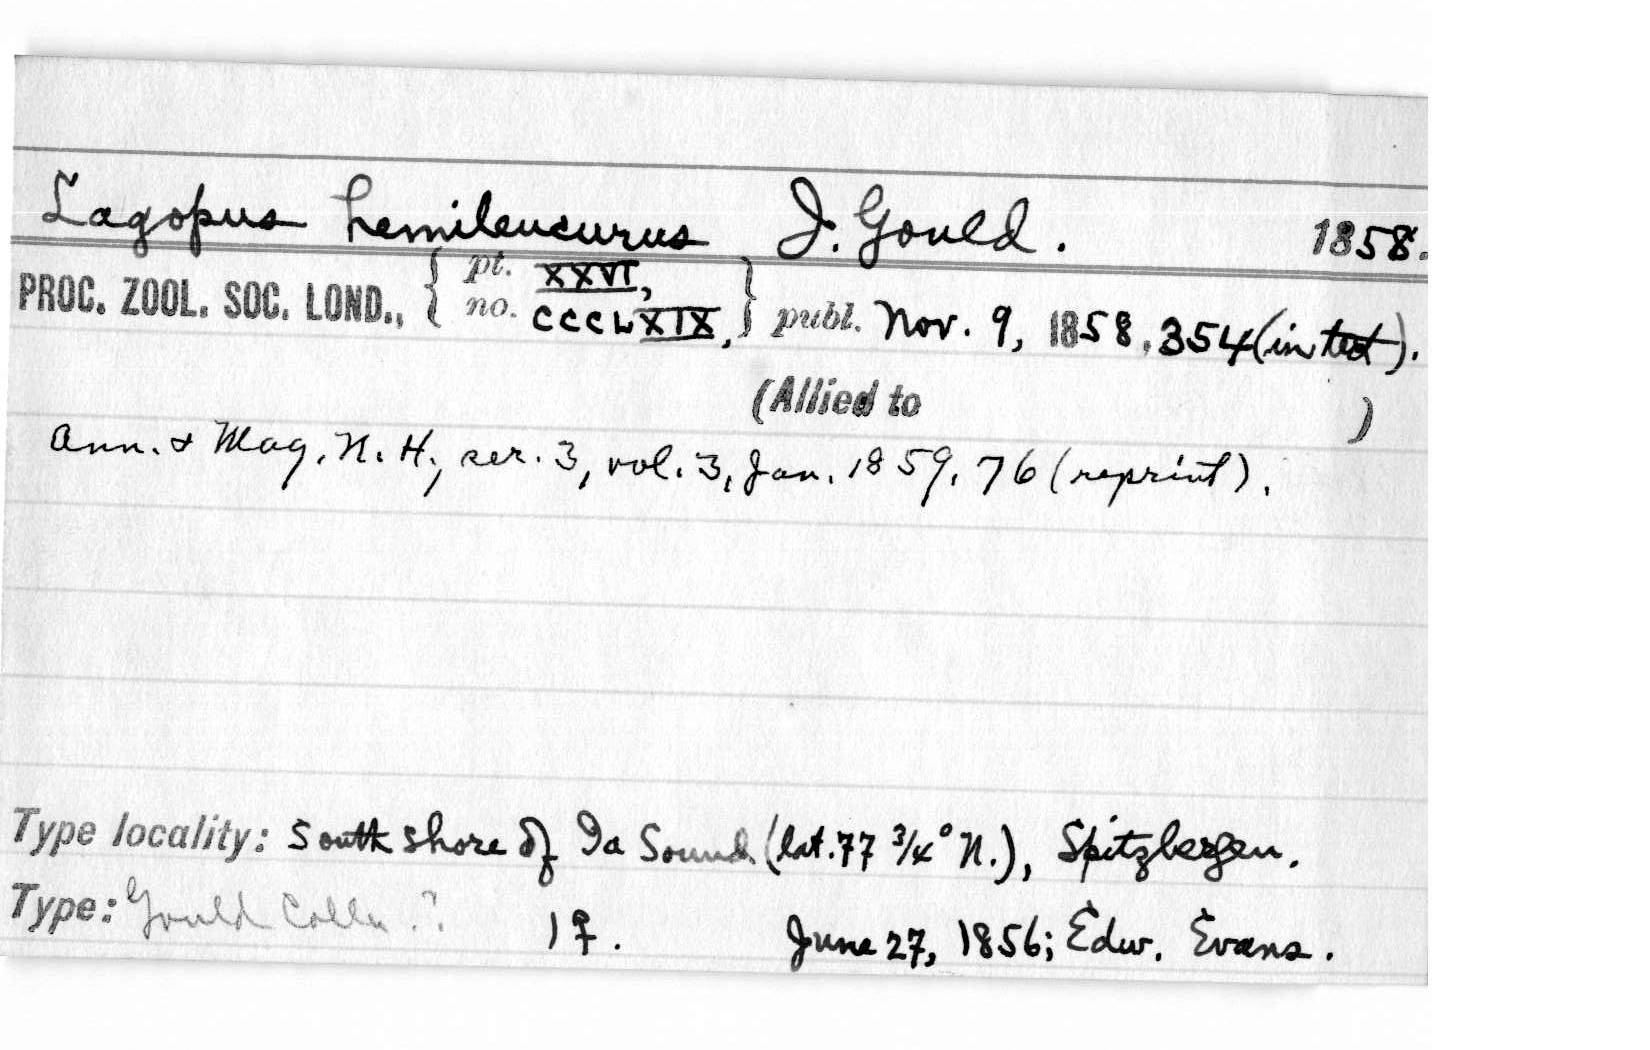 Lagopus hemileucurus J. Gould. 1858.
PROC. ZOOL. SOC. LOND., { pt. XXVI, no. CCCLXIX, } publ. Nov. 9, 1858, 354 (in text).
(Allied to )
Ann. & Mag. N. H., ser. 3, vol. 3, Jan. 1859, 76 (reprint).
Type locality: South shore of Ia Sound (lat. 77 3/4° N.), Spitzbergen.
Type: Gould Colln.? 1 ♀. June 27, 1856; Edw. Evans.